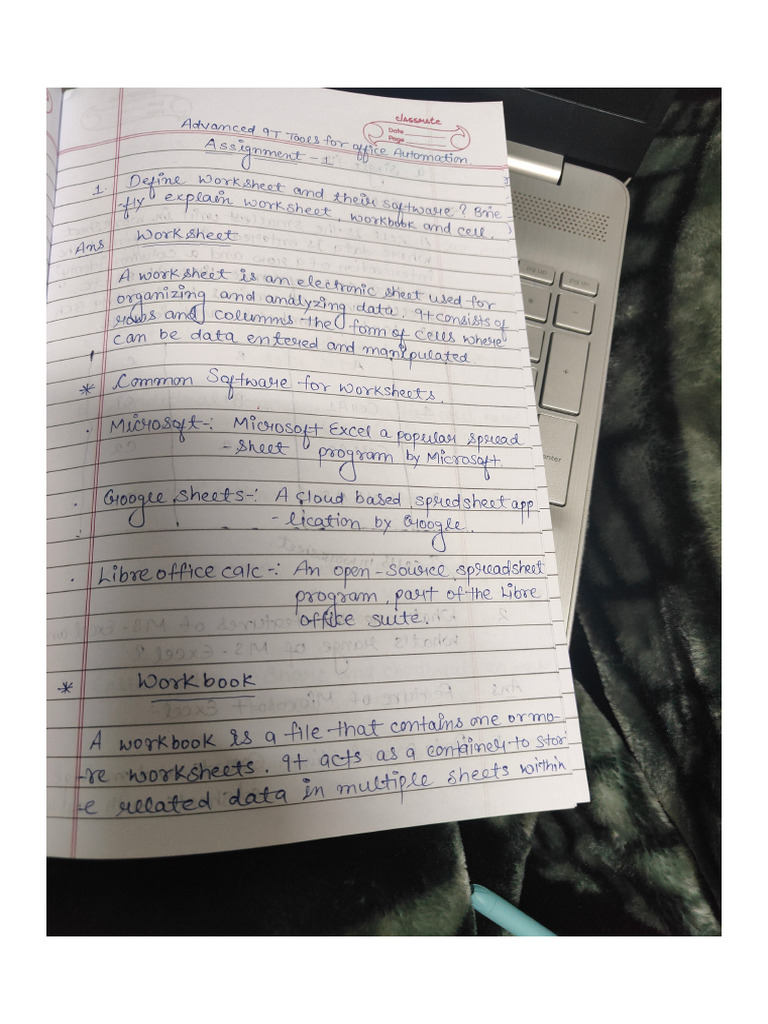 classmate
Date
Page
Advanced IT Tools for office Automation.
Assignment - 1
1. Define Worksheet and their software? Brie
-fly explain worksheet, workbook and cell.
Ans Worksheet
A worksheet is an electronic sheet used for
organizing and analyzing data, It consists of
rows and columns the form of cells where
can be data entered and manipulated.
* Common Software for worksheets.
. Microsoft-: Microsoft Excel a popular spread
-sheet program by Microsoft.
. Google sheets-: A cloud based spredsheet app
-lication by Google.
. Libre office calc-: An open-source spreadsheet
program, part of the Libre
office suite.
* Workbook
A workbook is a file that contains one or mo-
-re worksheets. It acts as a container to stor
-e related data in multiple sheets within